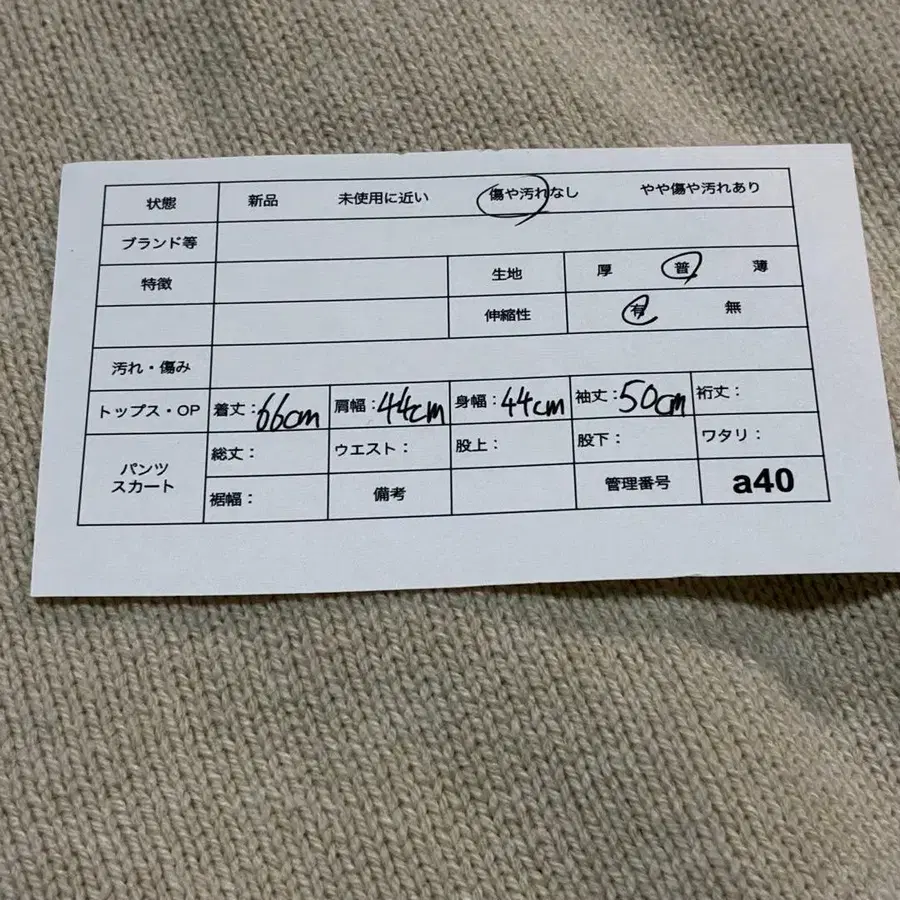 状態 新品 未使用に近い 傷や汚れなし やや傷や汚れあり
ブランド等
特徴 生地 厚 普 薄
伸縮性 有 無
汚れ・傷み
トップス・OP 着丈：66cm 肩幅：44cm 身幅：44cm 袖丈：50cm 裄丈：
パンツ スカート 総丈： ウエスト： 股上： 股下： ワタリ：
裾幅： 備考 管理番号 a40